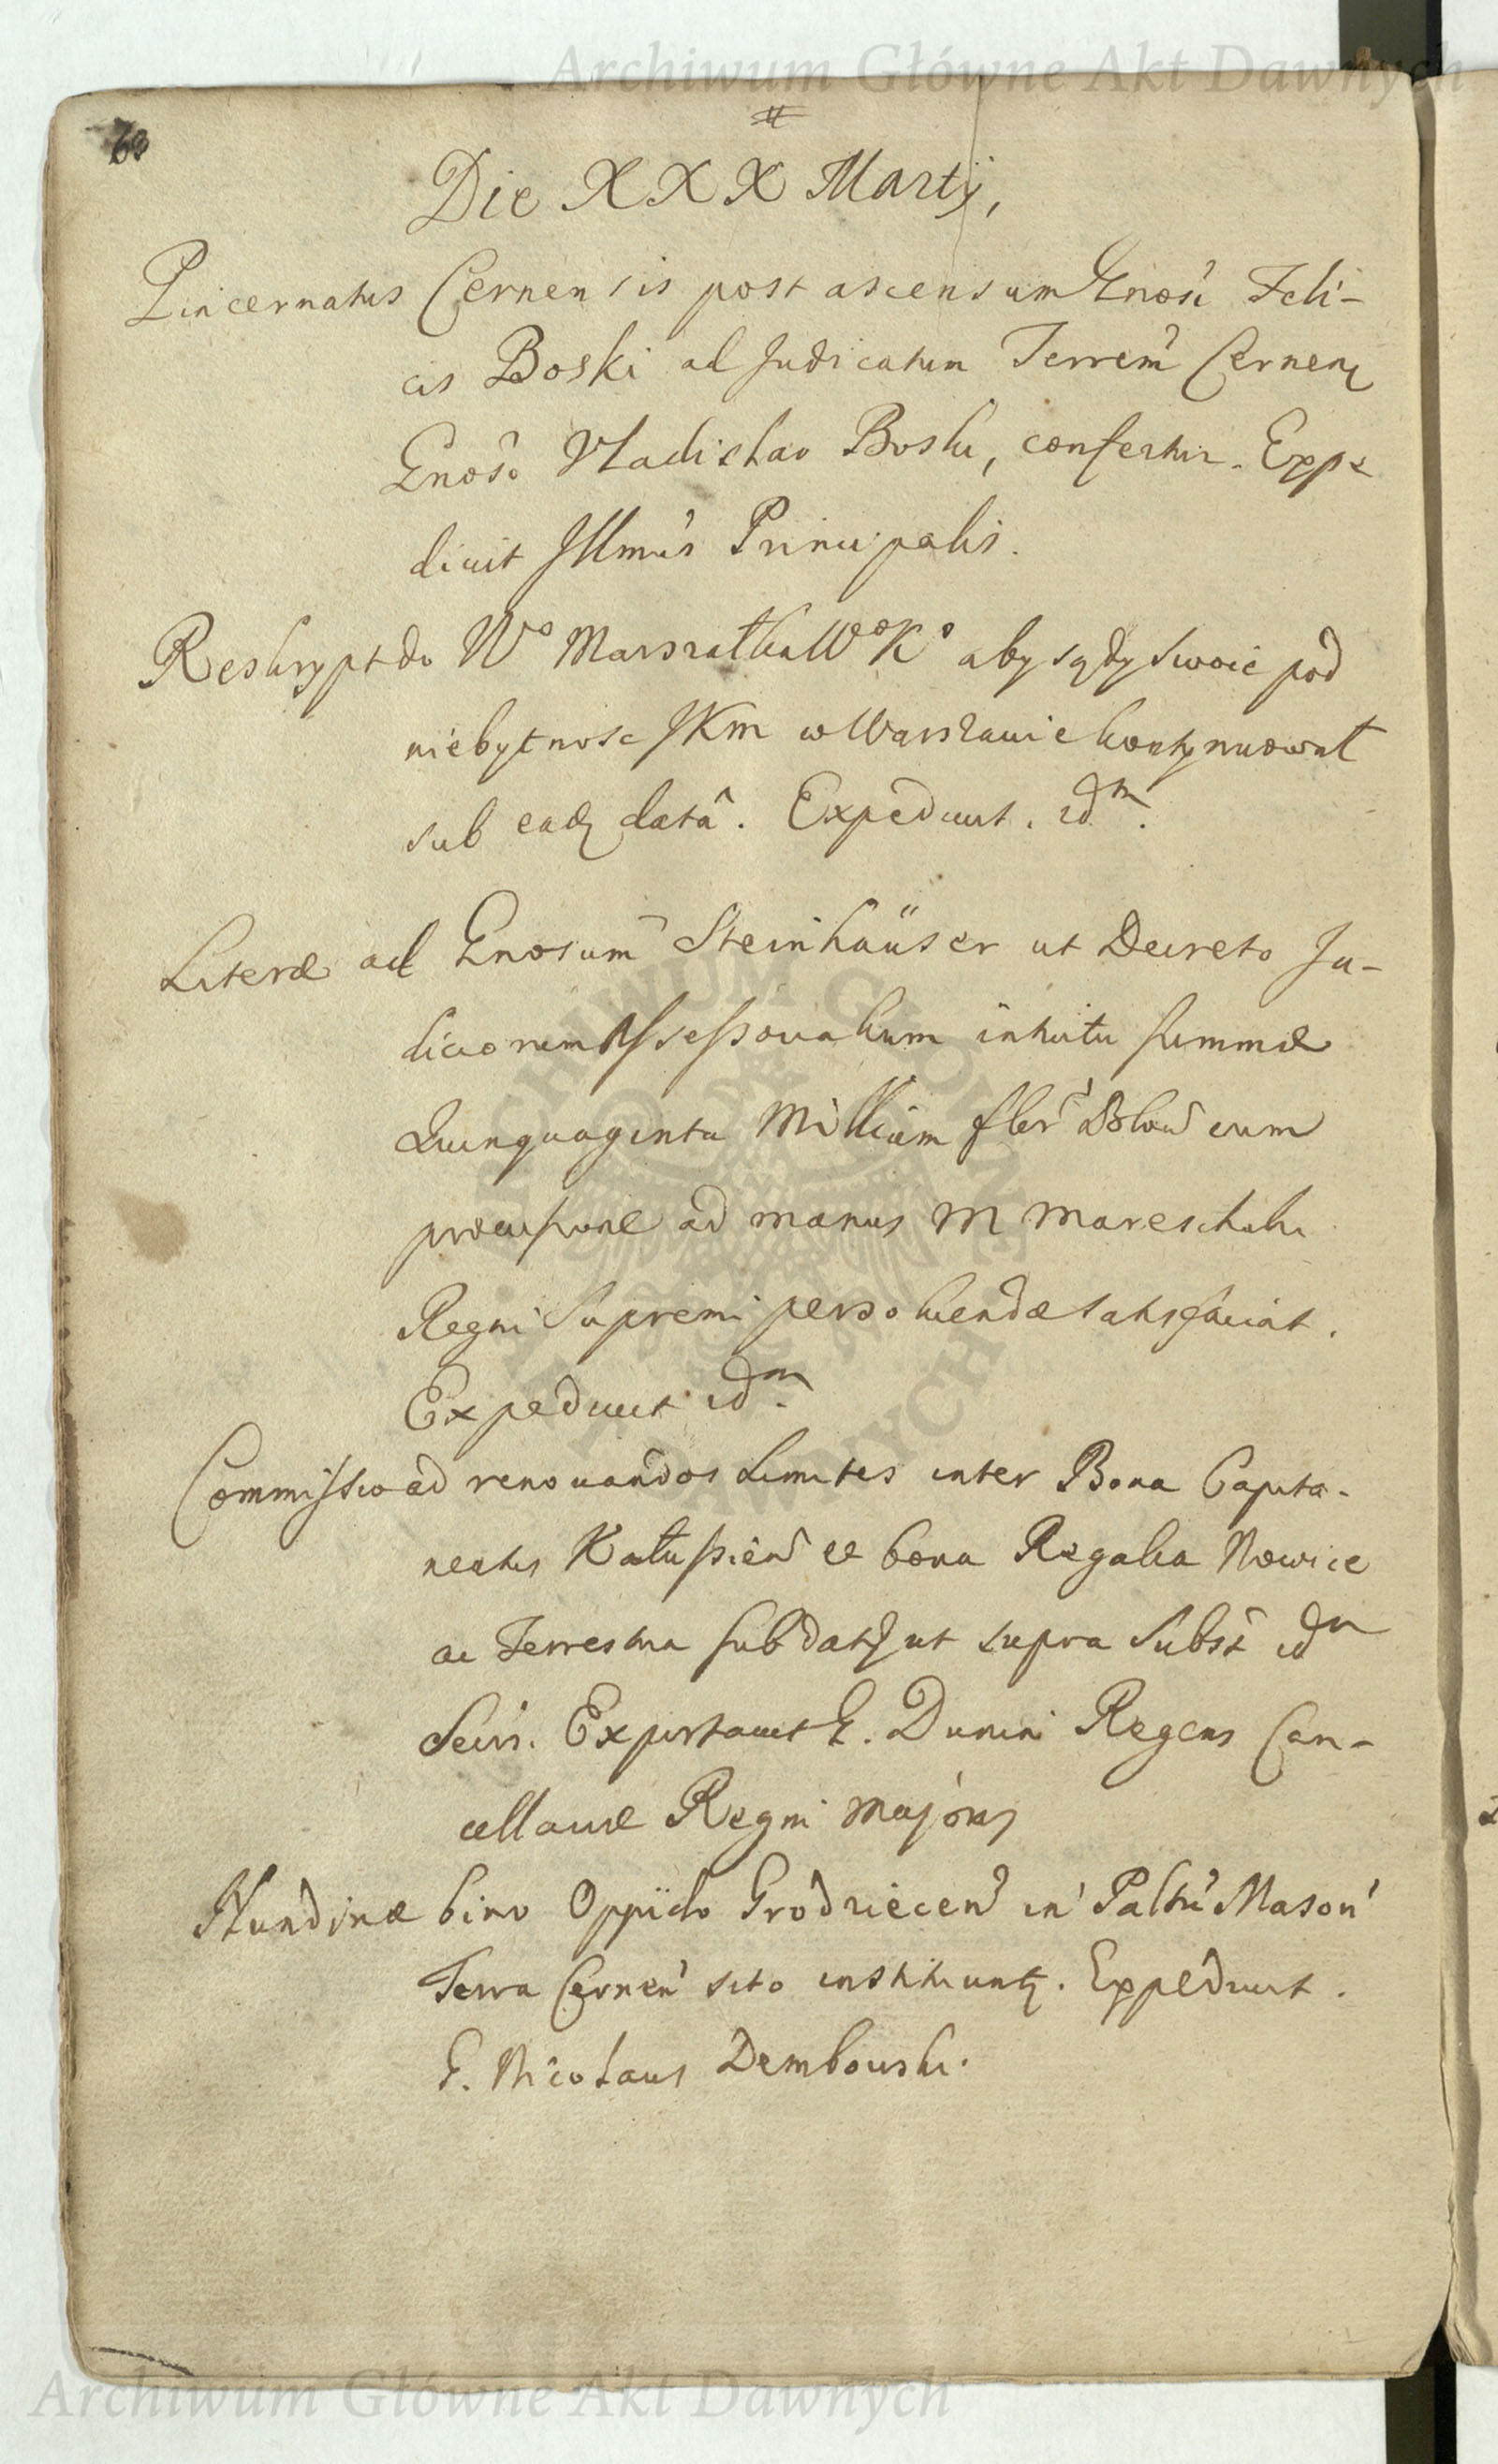 Archiwum Główne Akt Dawnych
Die XXX Martij,
Pincernatus Cernensis post ascensum Gnosi Feli-
cis Boski ad Judicatum Terrem Cernen
Gnoso Vladislao Boski, confertur. Expe
divit Jllmus Principalis.
Reskrypt do Wo Marszałka Wo Ko aby sądy swoie pod
niebytnosc JKm w Warszawie kontynuował
sub eadq datâ. Expedivit. idm.
Literæ ad Gnosum Steinhaüser ut Decreto Ju-
diciorum Assessorialium intuitu summæ
Quinquaginta Millium flor Polon cum
provisione ad manus M Mareschalci
Regni Supremi persolvendæ satisfaciat.
Expedivit idm.
Commissio ad renovandos Limites inter Bona Capita-
neatus Kałussien et bona Regalia Nowice
ac Terrestria sub datq ut supra Subst idm
Secr. Exportavit G. Dunin Regens Can-
cellariæ Regni Majoris
Nundinæ bino Oppido Grodziecen in Paltu Masov
Terra Cernen sito instituuntq. Expedivit.
G. Nicolaus Dembowski.
Archiwum Główne Akt Dawnych